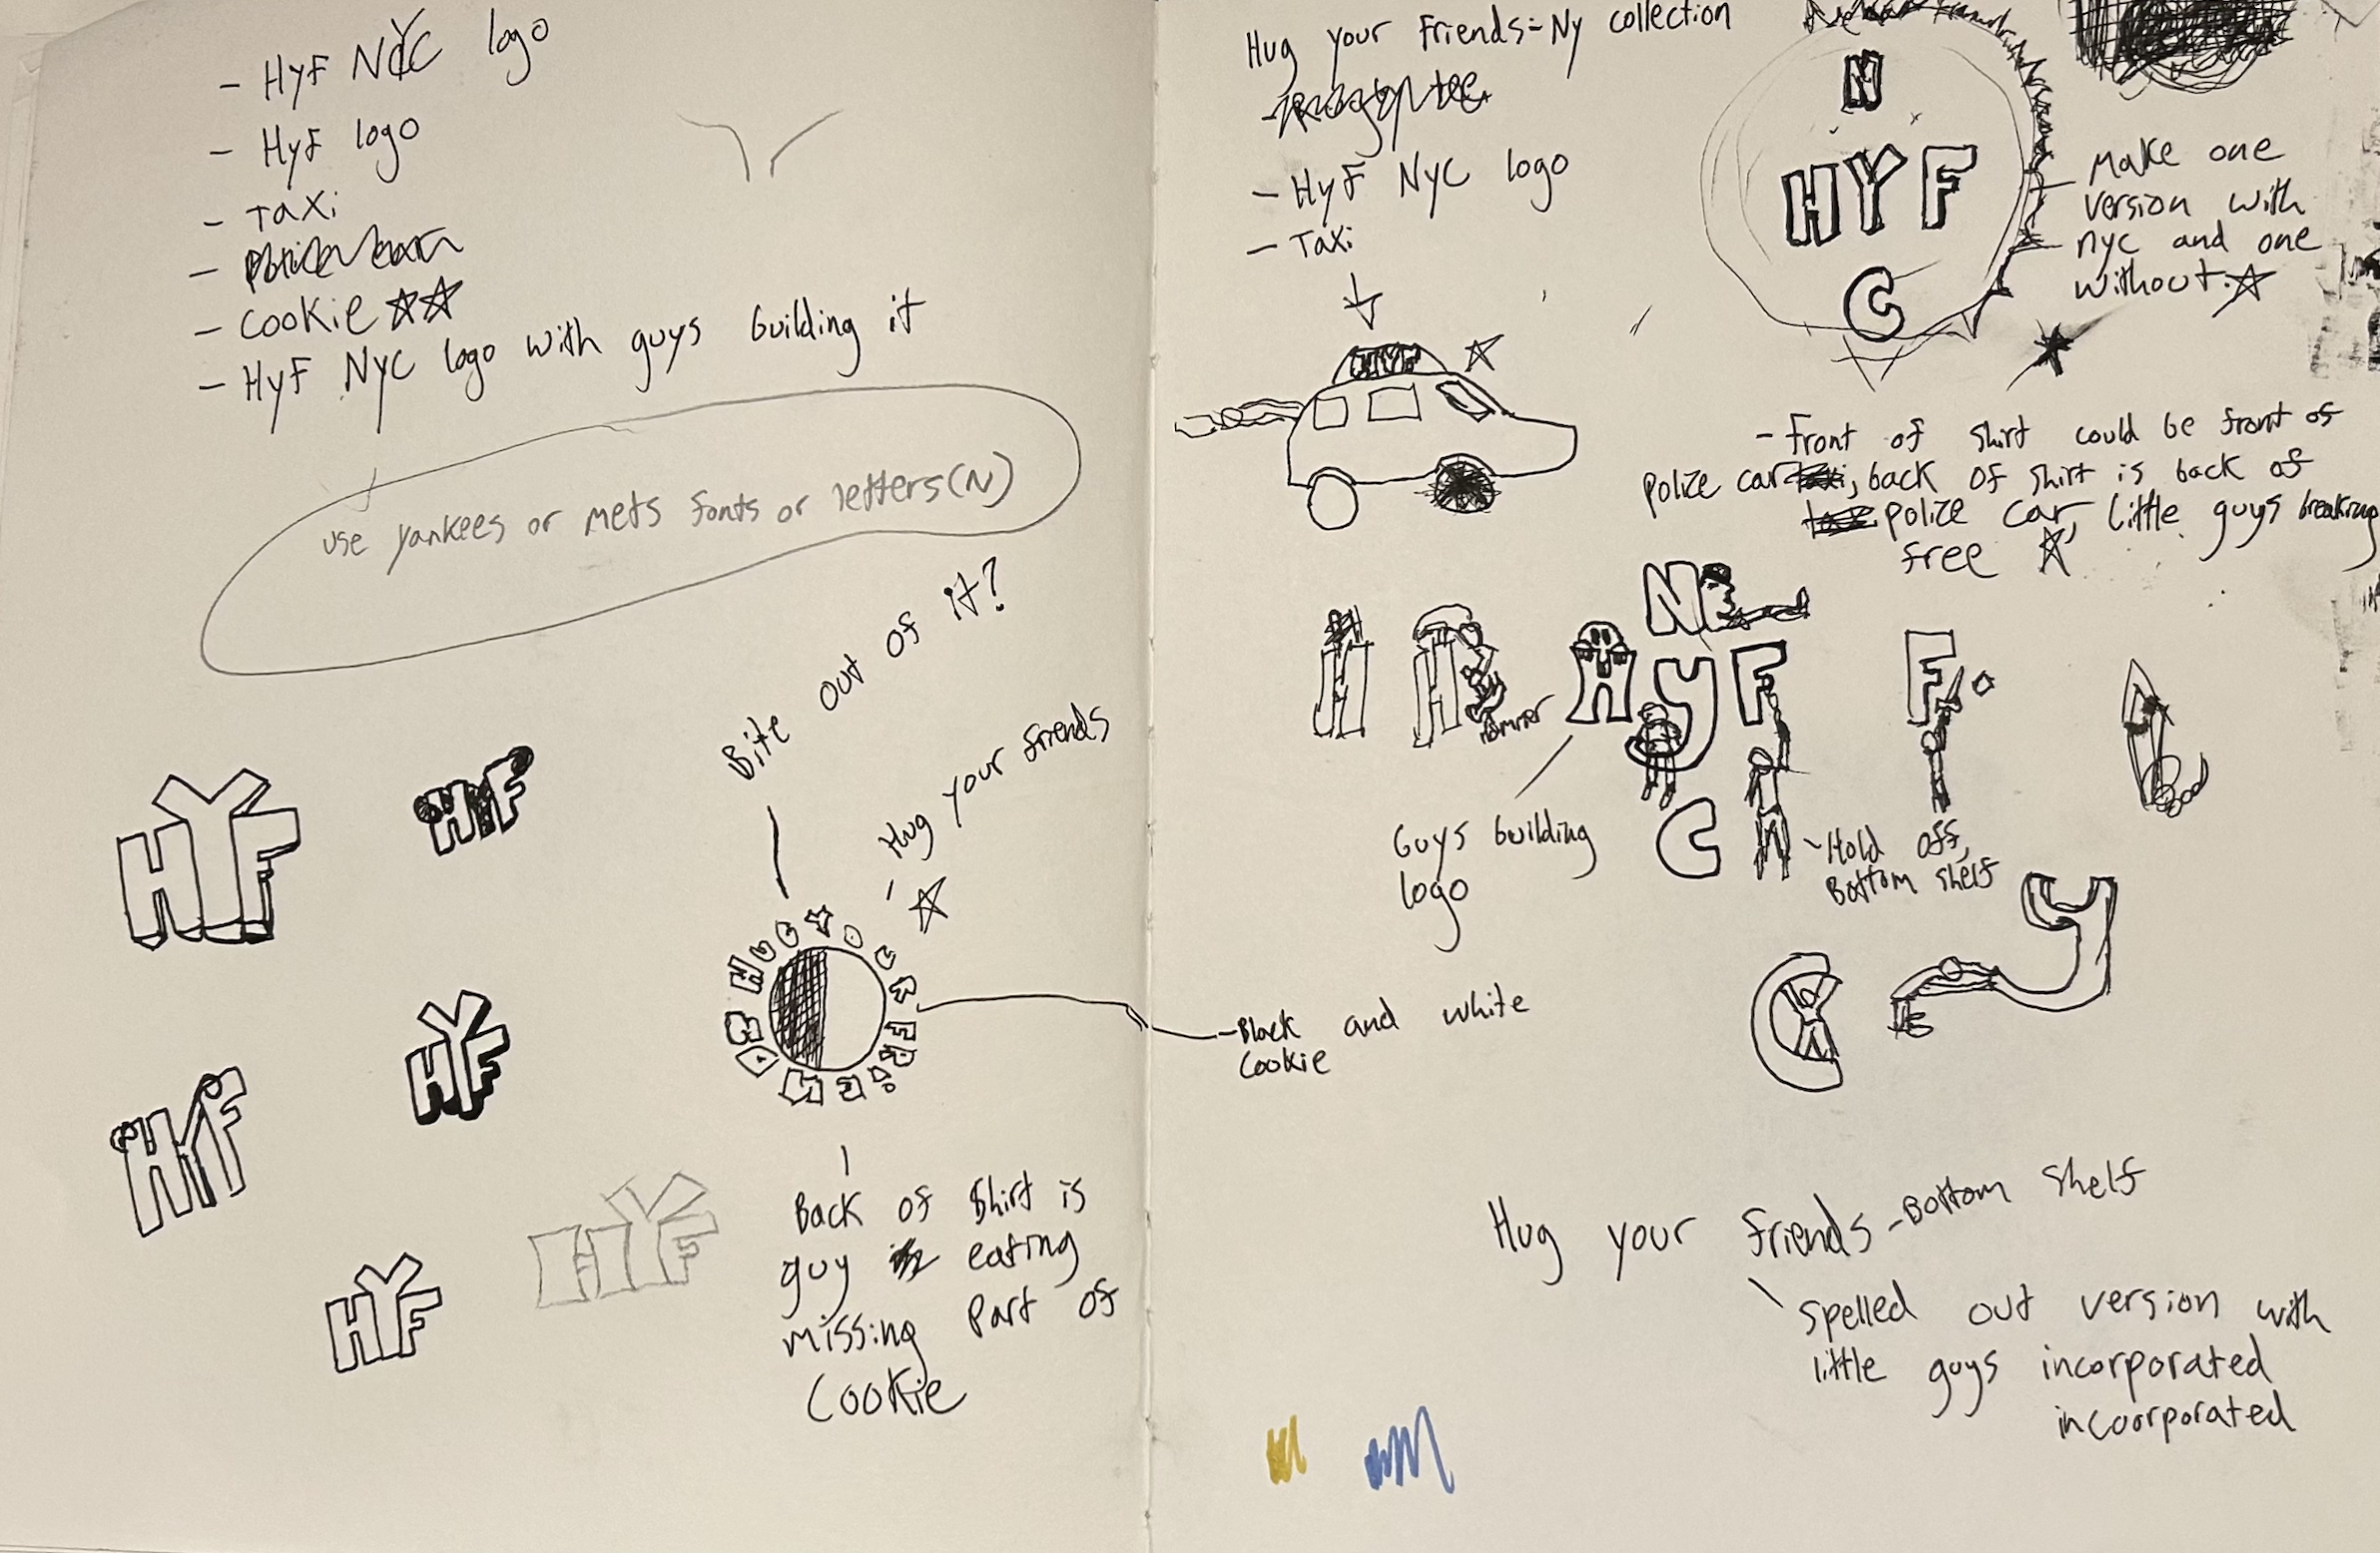 - HyF NYC logo
- HyF logo
- Taxi
- Cookie
- HyF NYC logo with guys building it
use yankees or mets fonts or letters(N)
Bite out of it?
- Hug your friends
HYF
HYF
HYF
HYF
HYF
HYF
Back of Shirt is
guy eating
missing Part of
Cookie
Hug your Friends - Ny collection
- HyF NYC logo
- Taxi
N
HYF
C
- Make one
version with
nyc and one
without.
HYF
- Front of shirt could be front of
polize car, back of shirt is back of
polize car, little guys breaking
free
H
H
hammer
N
HYF
C
F
Guys building
logo
- Hold off,
Bottom shelf
Y
C
- Black and white
Cookie
Hug your friends - Bottom shelf
spelled out version with
little guys incorporated
incoorporated